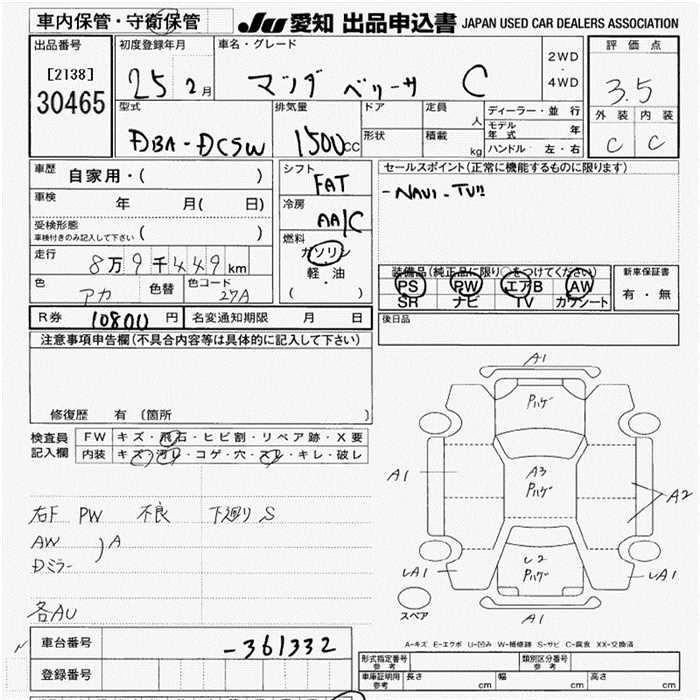 車内保管・守衛保管
JU 愛知 出品申込書 JAPAN USED CAR DEALERS ASSOCIATION
出品番号
[2138]
30465
初度登録年月
25 2月
車名・グレード
マツダ ベリーサ C
2WD
・
4WD
評価点
3.5
外装 内装
C C
型式
DBA-DC5W
排気量
1500cc
ドア
形状
定員
人
積載
kg
ディーラー・並行
モデル年式 年
ハンドル 左・右
車歴 自家用・( )
車検 年 月( 日)
受検形態
車検付きのみ記入して下さい ( )
走行
8万9千449km
色
アカ
色替
色コード
27A
シフト
FAT
冷房
AA/C
燃料
ガソリン
軽・油
・
( )
セールスポイント(正常に機能するものに限ります)
-NAVI-TV!!
装備品(純正品に限り○をつけてください)
PS PW エアB AW
SR ナビ TV カワシート
新車保証書
有・無
R券 10800円
名変通知期限 月 日
後日品
注意事項申告欄(不具合内容等は具体的に記入して下さい)
修復歴 有(箇所 )
検査員
記入欄
FW キズ・飛石・ヒビ割・リペア跡・X要
内装 キズ・汚レ・コゲ・穴・スレ・キレ・破レ
右F PW 不良 下廻りS
AW
Dミラー
)A
各AU
A1
Pハゲ
A1
A3
Pハゲ
A2
U2
Pハゲ
UA1
UA1
A1
スペア
A-キズ E-エクボ U-凹み W-補修跡 S-サビ C-腐食 XX-交換済
車台番号 -361332
登録番号
形式指定番号
参考
類別区分番号
参考
車庫証明用
参考
長さ cm
幅 cm
高さ cm